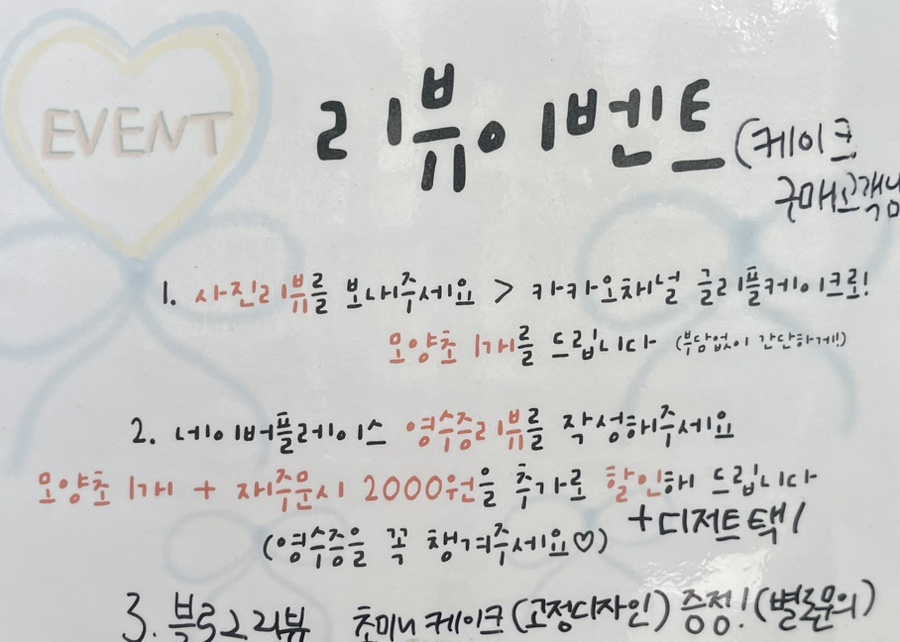 EVENT
리뷰이벤트 (케이크
구매고객님
1. 사진리뷰를 보내주세요 > 카카오채널 글리플케이크로!
모양초 1개를 드립니다 (부담없이 간단하게!)
2. 네이버플레이스 영수증리뷰를 작성해주세요
모양초 1개 + 재주문시 2000원을 추가로 할인해 드립니다
+디저트택1
(영수증을 꼭 챙겨주세요♡)
3. 블로그리뷰 초미니케이크(고정디자인) 증정! (별도문의)